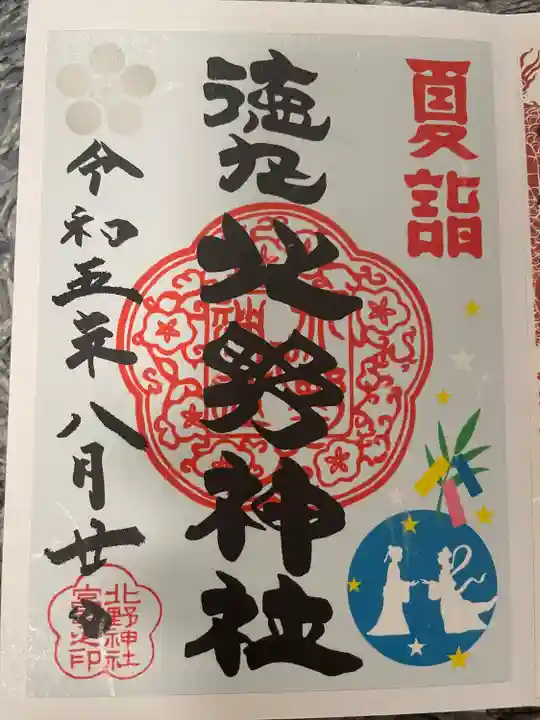 夏詣
徳丸北野神社
令和五年八月廿日
北野神社
宮司之印